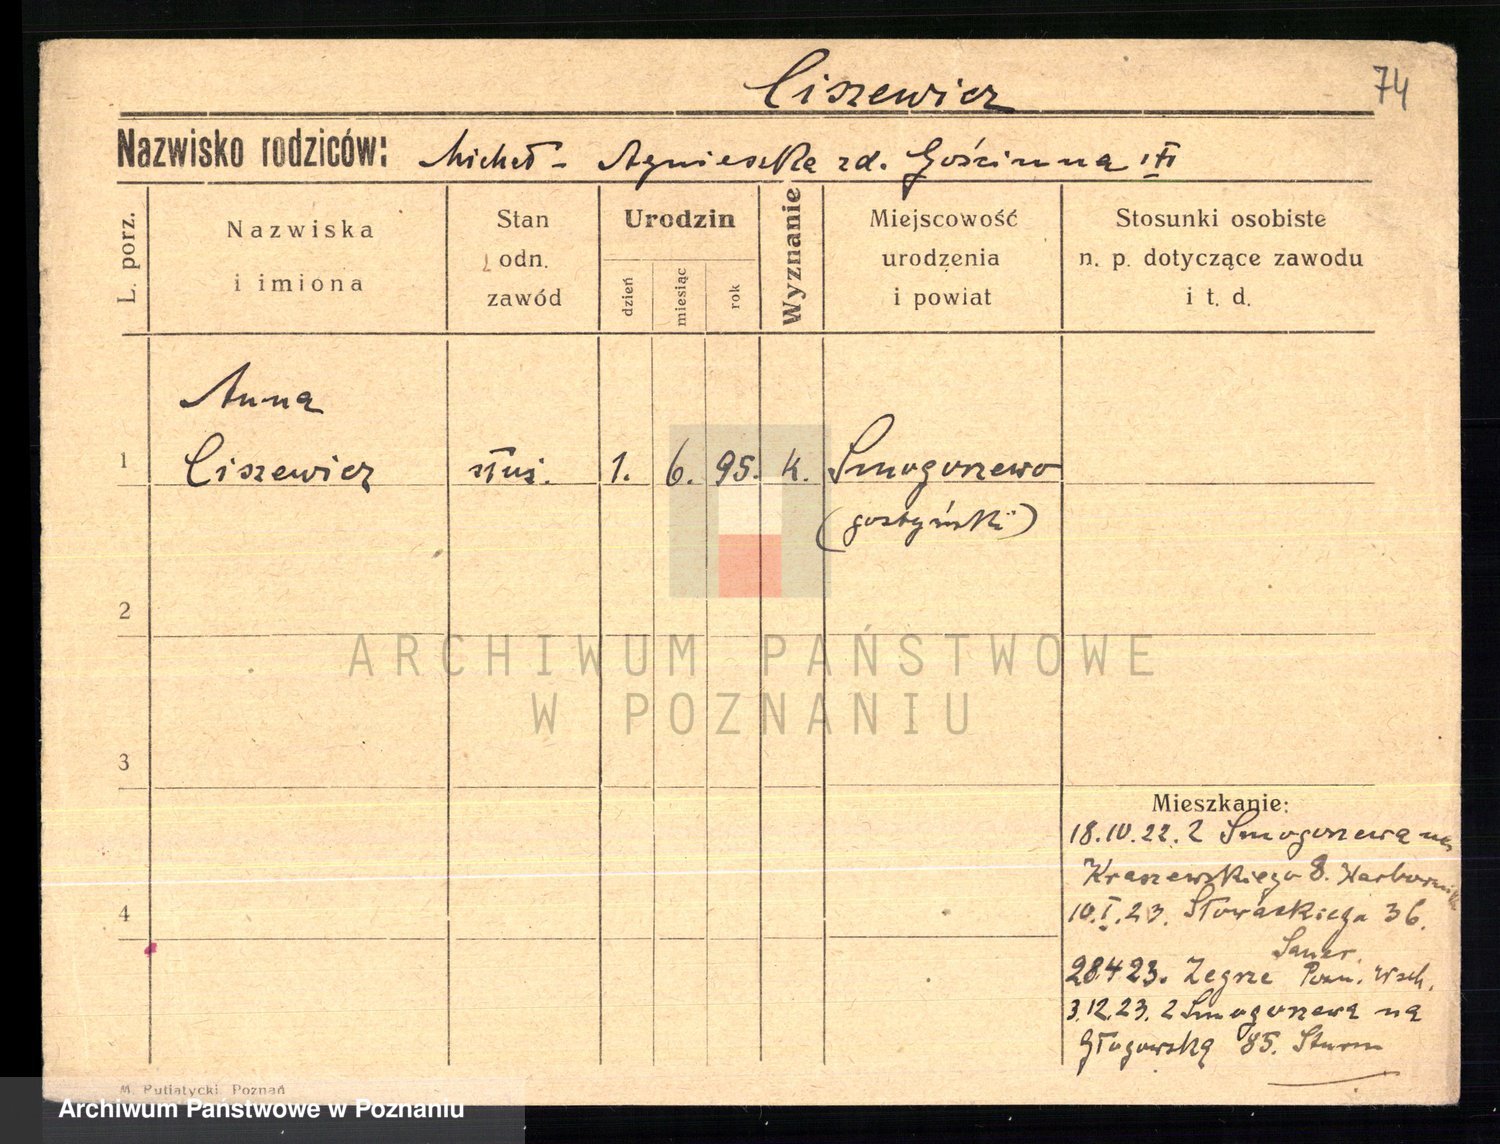 Ciszewicz
74
Nazwisko rodziców: Michał - Agnieszka zd. Gościnna
L. porz.
Nazwiska
i imiona
Stan
odn.
zawód
Urodzin
dzień
miesiąc
rok
Wyznanie
Miejscowość
urodzenia
i powiat
Stosunki osobiste
n. p. dotyczące zawodu
i t. d.
Anna
1 Ciszewicz służ. 1. 6. 95. k. Smogorzewo
(gostyński)
2
ARCHIWUM PAŃSTWOWE
W POZNANIU
3
Mieszkanie:
18.10.22. z Smogorzewa na
Kraszewskiego 8.
4
10.I.23. Słowackiego 36.
28.4.23. Zegrze Pozn. Wsch.
3.12.23. z Smogorzewa na
Głogowską 85. Sturm
M. Putiatycki, Poznań
Archiwum Państwowe w Poznaniu